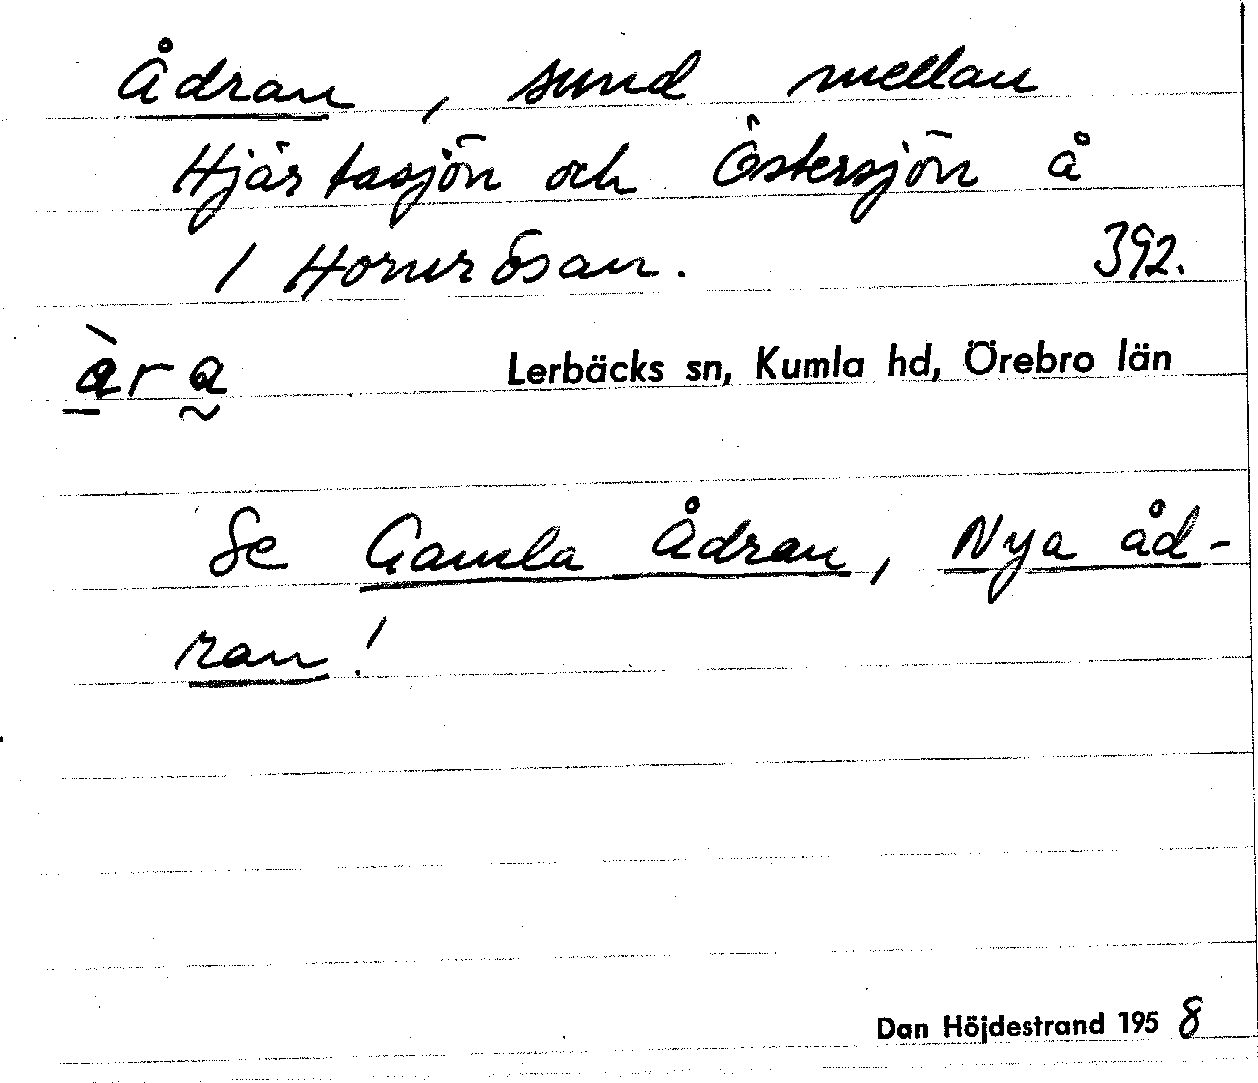 Ådran, sund mellan
Hjärtasjön och Östersjön å
1 Hornrösan. 392.
àra Lerbäcks sn, Kumla hd, Örebro län
Se Gamla Ådran, Nya åd-
ran!
Dan Höjdestrand 1958